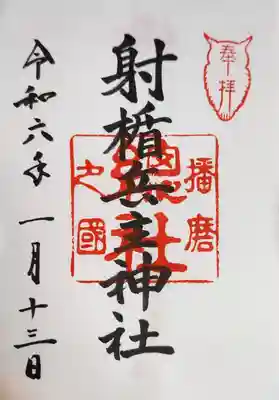 奉拝
射楯兵主神社
播磨
総社
之國
令和六年一月十三日